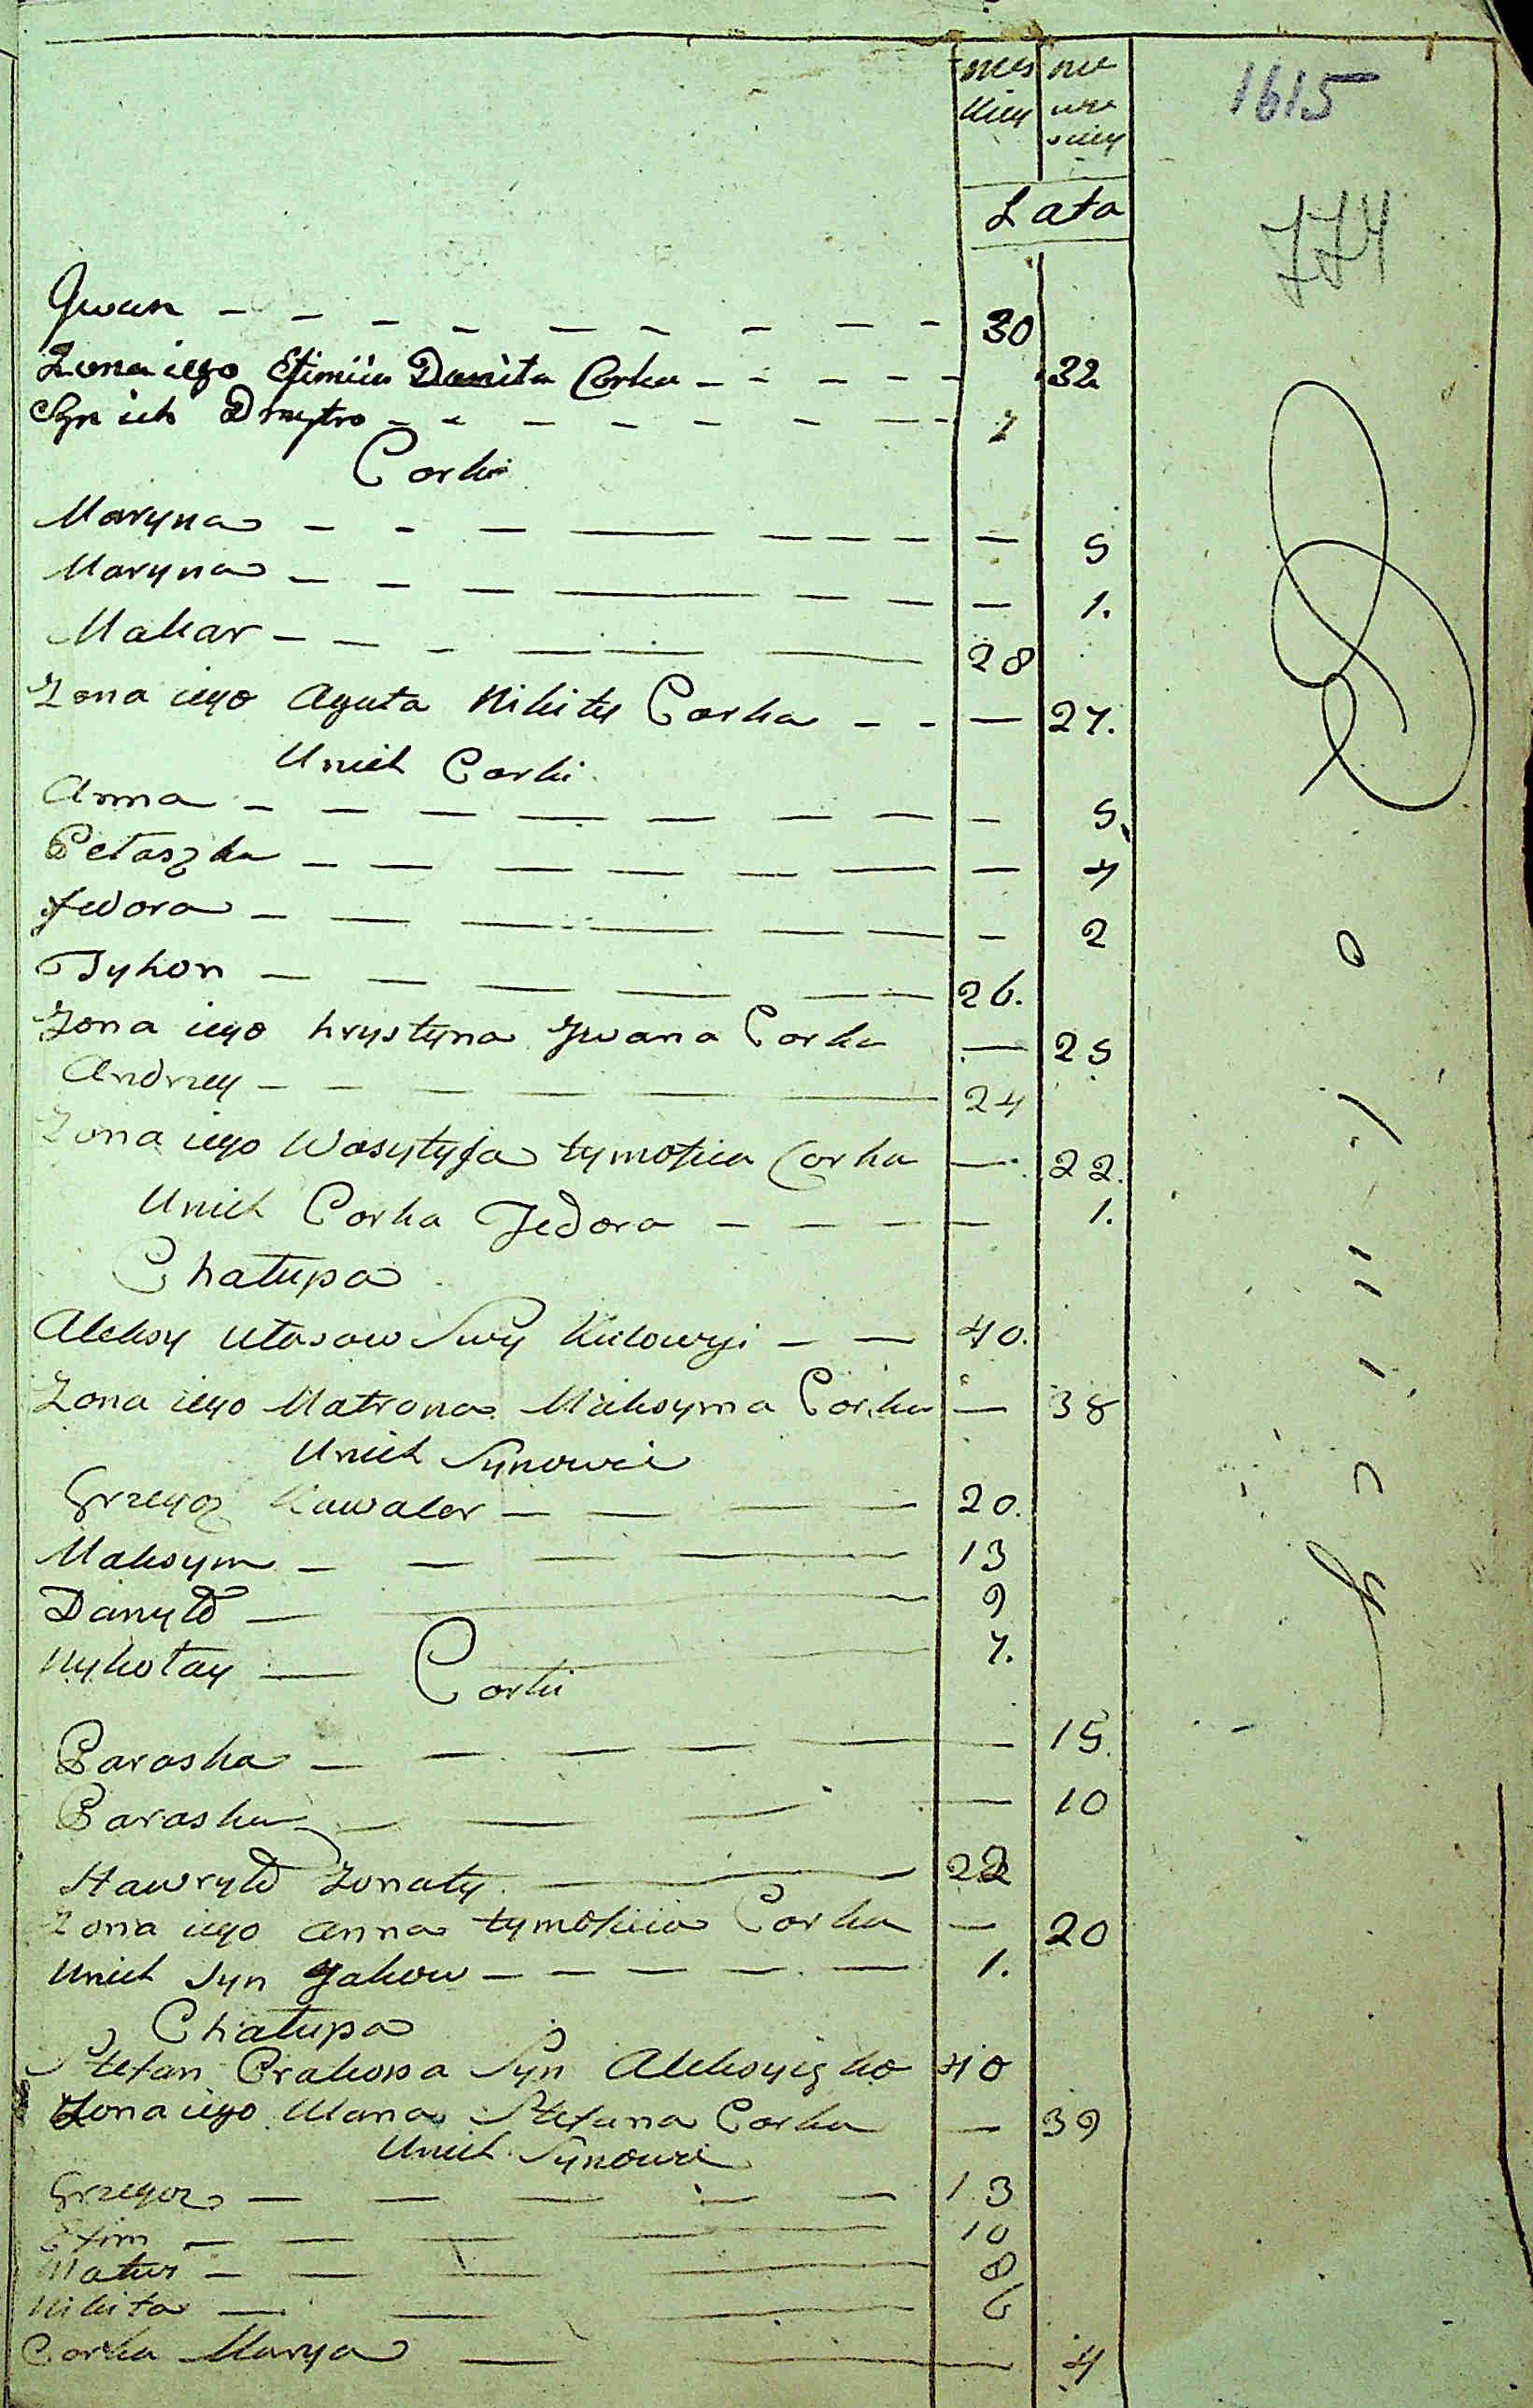 mes nie
kiey wie
sciey
1615
Lata
774
Jwan — — — — — — — — — 30
Zona iego Efimiia Daniła Corka — — — — — 32
Syn ich Dmytro — — — — — — — 7
Corki
Maryna — — — — — — — — 5
Maryna — — — — — — — 1.
Makar — — — — — — 28
Zona iego Agata Nikity Corka — — — 27.
Unich Corki
Anna — — — — — — — — 5
Pełaszka — — — — — — — 4
Fedora — — — — — — — 2
Tyhon — — — — — — 26.
Zona iego hrystyna Jwana Corka — 25
Andrzey — — — — — 24
Zona iego Wasyłyja tymofiea Corka — 22.
Unich Corka Fedora — — — — 1.
Chałupa
Aleksy Własow Swy — — 40.
Zona iego Matrona Maksyma Corka — 38
Unich Synowie
Grzegoz Kawaler — — — — 20.
Maksym — — — — 13
Danyło — — 9
Mykołay — — 7.
Corki
Paraska — — — — — — 15.
Paraska — — — — 10
Hawryło Zonaty — — 22
Zona iego Anna tymofieia Corka — 20
Unich Syn Jakow — — — — — — 1.
Chałupa
Stefan Prakopa Syn 40
Zona iego Marya Stefana Corka — 39
Unich Synowie
Grzegoz — — — — — 13
Efim — — — — 10
— — — — 8
Nikita — — — 6
Corka Marya — — — — 4